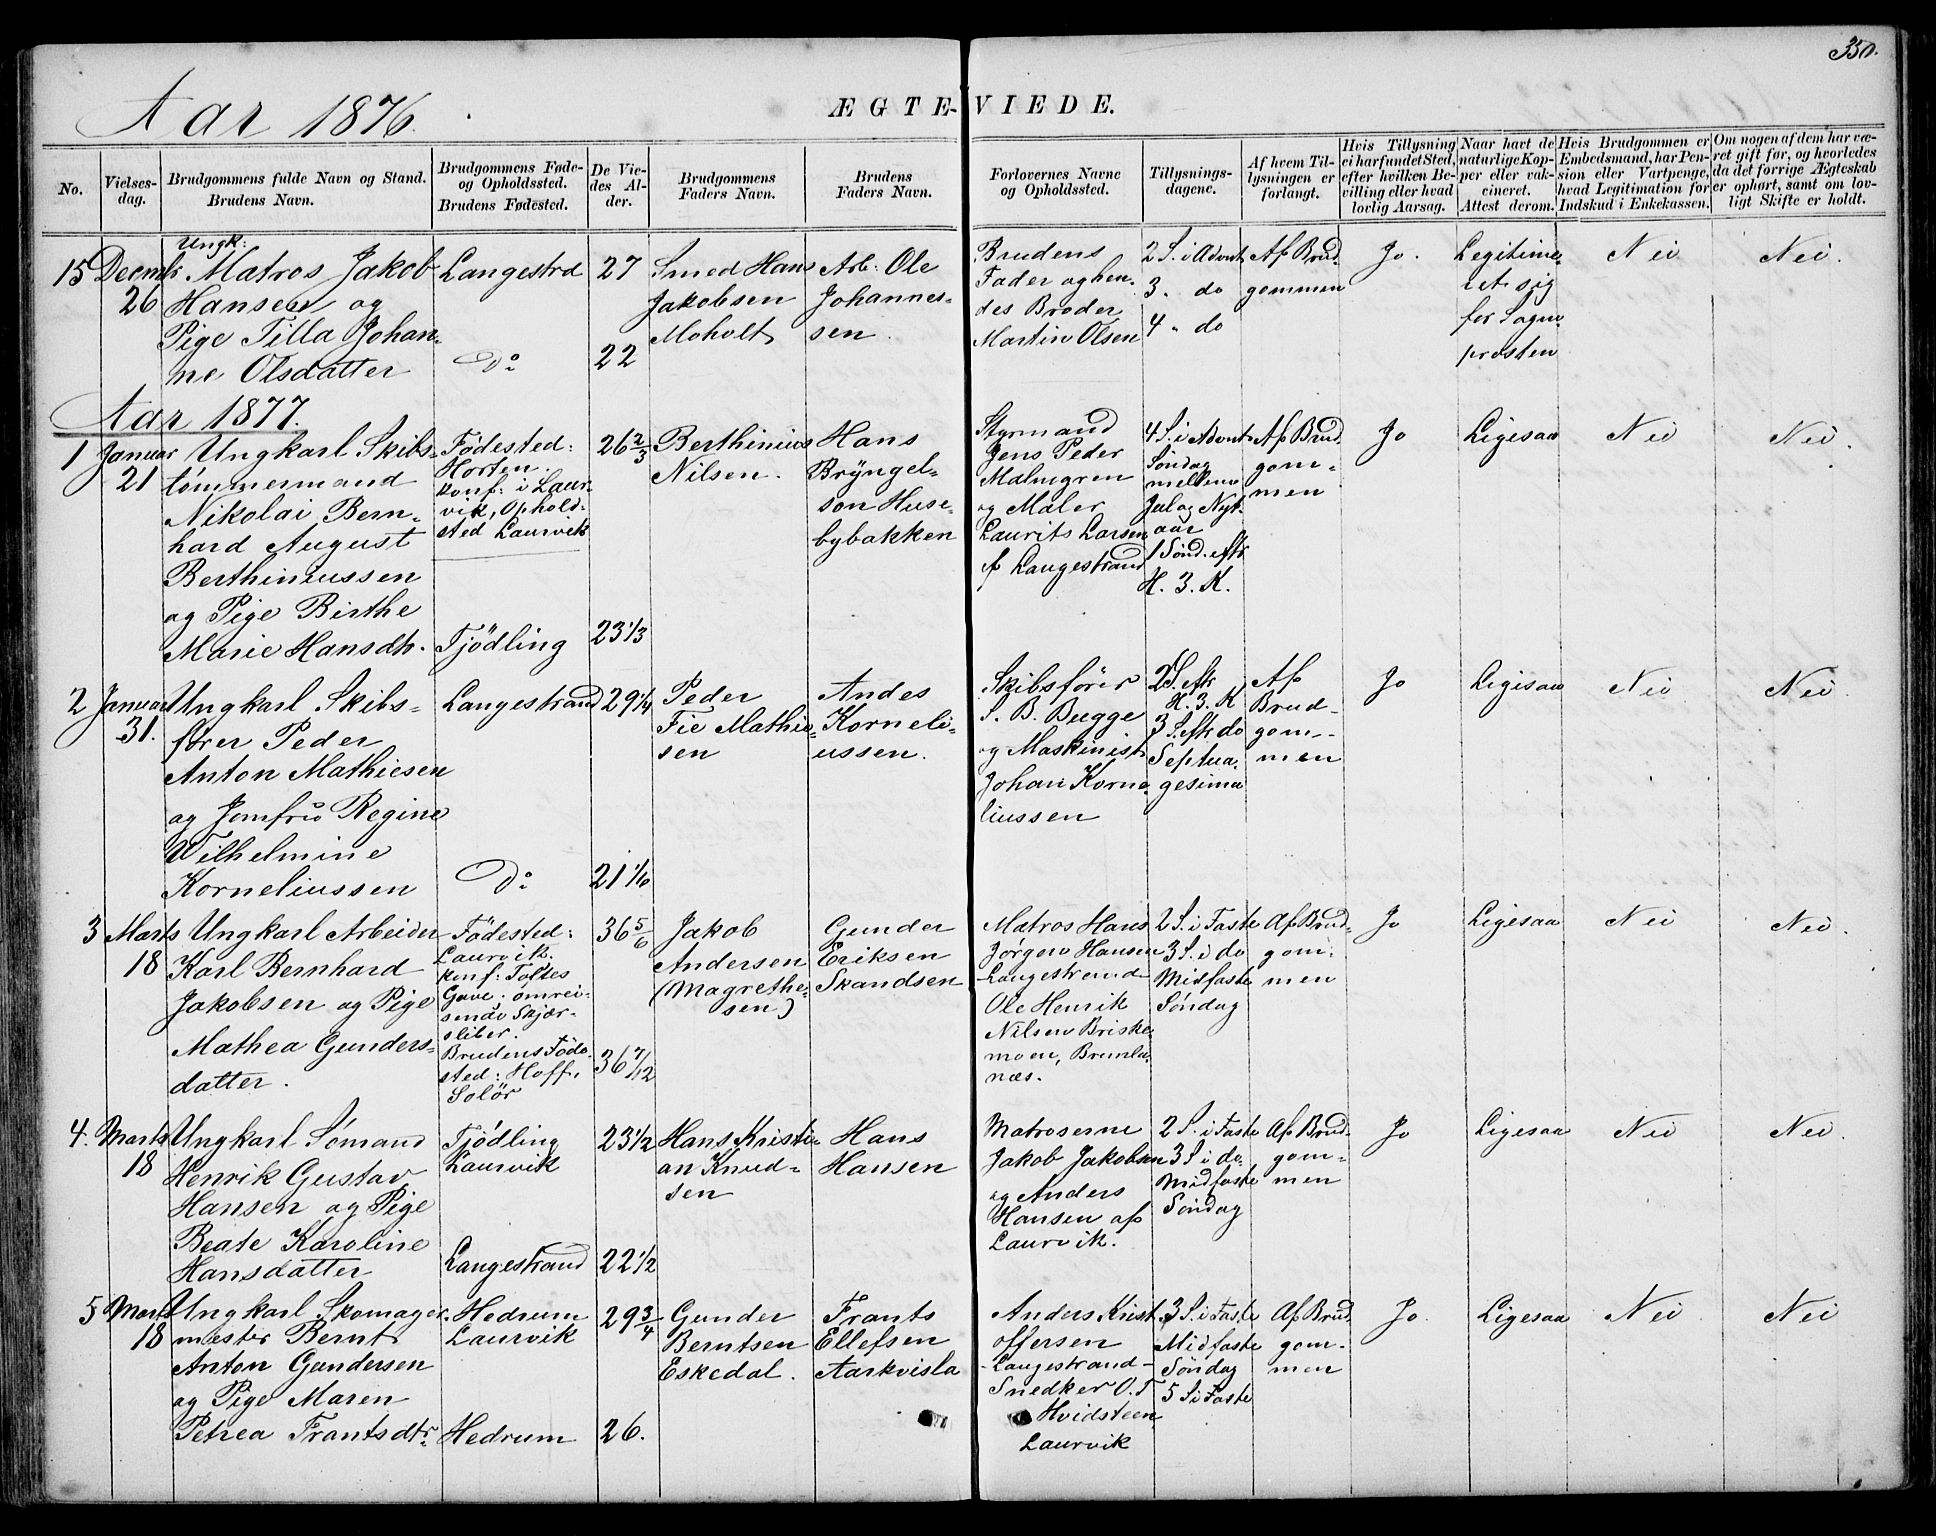 350.
Aar 1876.
ÆGTE-VIEDE.
No.
Vielses-
dag.
Brudgommens fulde Navn og Stand.
Brudens Navn.
Brudgommens Føde-
og Opholdssted.
Brudens Fødested.
De Vie-
des Al-
der.
Brudgommens
Faders Navn.
Brudens
Faders Navn.
Forlovernes Navne
og Opholdssted.
Tillysnings-
dagene.
Af hvem Til-
lysningen er
forlangt.
Hvis Tillysning
ei har fundet Sted,
efter hvilken Be-
villing eller hvad
lovlig Aarsag.
Naar havt de
naturlige Kop-
per eller vak-
cineret.
Attest derom.
Hvis Brudgommen er
Embedsmand, har Pen-
sion eller Vartpenge,
hvad Legitimation for
Indskud i Enkekassen.
Om nogen af dem har væ-
ret gift før, og hvorledes
da det forrige Ægteskab
er ophørt, samt om lov-
ligt Skifte er holdt.
15
Decmbr
26
Ungk:
Matros Jakob
Hansen og
Pige Tilla Johan-
ne Olsdatter
Langestrd
Do
27
22
Smed Hans
Jakobsen
Moholt
Arb: Ole
Johannes-
sen.
Brudens
Fader og hen-
des Broder
Martin Olsen
2 S. i Advnt
3 . do
4 " do
Af Brud-
gommen
Jo.
Legitime-
ret sig
for Sogne
presten
Nei
Nei.
Aar 1877.
1
Januar
21
Ungkarl Skibs-
tømmermand
Nikolai Bern-
hard August
Berthiniussen
og Pige Birthe
Marie Hansdtr.
Fødested:
Horten.
konf: i Laur-
vik, Ophold-
sted Laurvik
Tjødling
26 2/3
23 1/3
Berthinius
Nilsen.
Hans
Brÿngel-
son Huse-
bybakken
Styrmand
Jens Peder
Malmgren
og Maler
Laurits Larsen
af Langestrand
4 S. i Advnt
Søndag
mellem
Jul og Nyt-
aar
1 Sønd. eftr
H. 3. K.
Af Brud-
gom-
men
Jo
Ligesaa
Nei
Nei.
2
Januar
31.
Ungkarl Skibs-
fører Peder
Anton Mathiesen
og Jomfru Regine
Wilhelmine
Korneliussen
Langestrand
Do
29 1/4
21 1/6
Peder
Fie Mathie-
sen
Andes
Korneli-
ussen.
Skibsfører
S. B. Bugge
og Maskinist
Johan Korne-
liussen
2 S. eftr
H. 3. K
3 S. eftr do
Septua-
gesima
Af
Brud-
gom-
men
Jo
Ligesaa
Nei
Nei.
3
Marts
18
Ungkarl Arbeider
Karl Bernhard
Jakobsen og Pige
Mathea Gunders-
datter.
Fødested:
Laurvik.
konf: Toltes
Gave: omrei-
sende Skjær-
sliber.
Brudens Føde-
sted: Hoff,
Solør
36 5/6
36 7/12
Jakob
Andersen
(Magrethe-
sen)
Gunder
Eriksen
Skandsen
Matros Hans
Jørgen Hansen
Langestrand
Ole Henrik
Nilsen Briske-
moen, Brunla-
næs.
2 S. i Faste
3 S. i do
Midfaste
Søndag
Af Brud-
gom-
men
Jo
Ligesaa
Nei
Nei.
4.
Marts
18
Ungkarl Sømand
Henrik Gustav
Hansen og Pige
Beate Karoline
Hansdatter
Tjødling
Laurvik
Langestrand
23 1/2
22 1/2
Hans Kristi-
an Knud-
sen
Hans
Hansen
Matroserne
Jakob Jakobsen
og Anders
Hansen af
Laurvik.
2 S. i Faste
3 S i do.
Midfaste
Søndag
Af Brud-
gom-
men
Jo
Ligesaa
Nei
Nei.
5
Marts
18
Ungkarl Skomager-
mester Bernt
Anton Gundersen
og Pige Maren
Petrea Frantsdtr.
Hedrum
Laurvik
Hedrum
29 3/4
26.
Gunder
Berntsen
Eskedal.
Frants
Ellefsen
Aarkvisla
Anders Krist-
offersen
Langestrand
Snedker O. T
Hvidsteen
Laurvik
3 S. i Faste
Midfaste
Søndag
5 S i Faste
Af Brud-
gom-
men
Jo.
Ligesaa
Nei
Nei